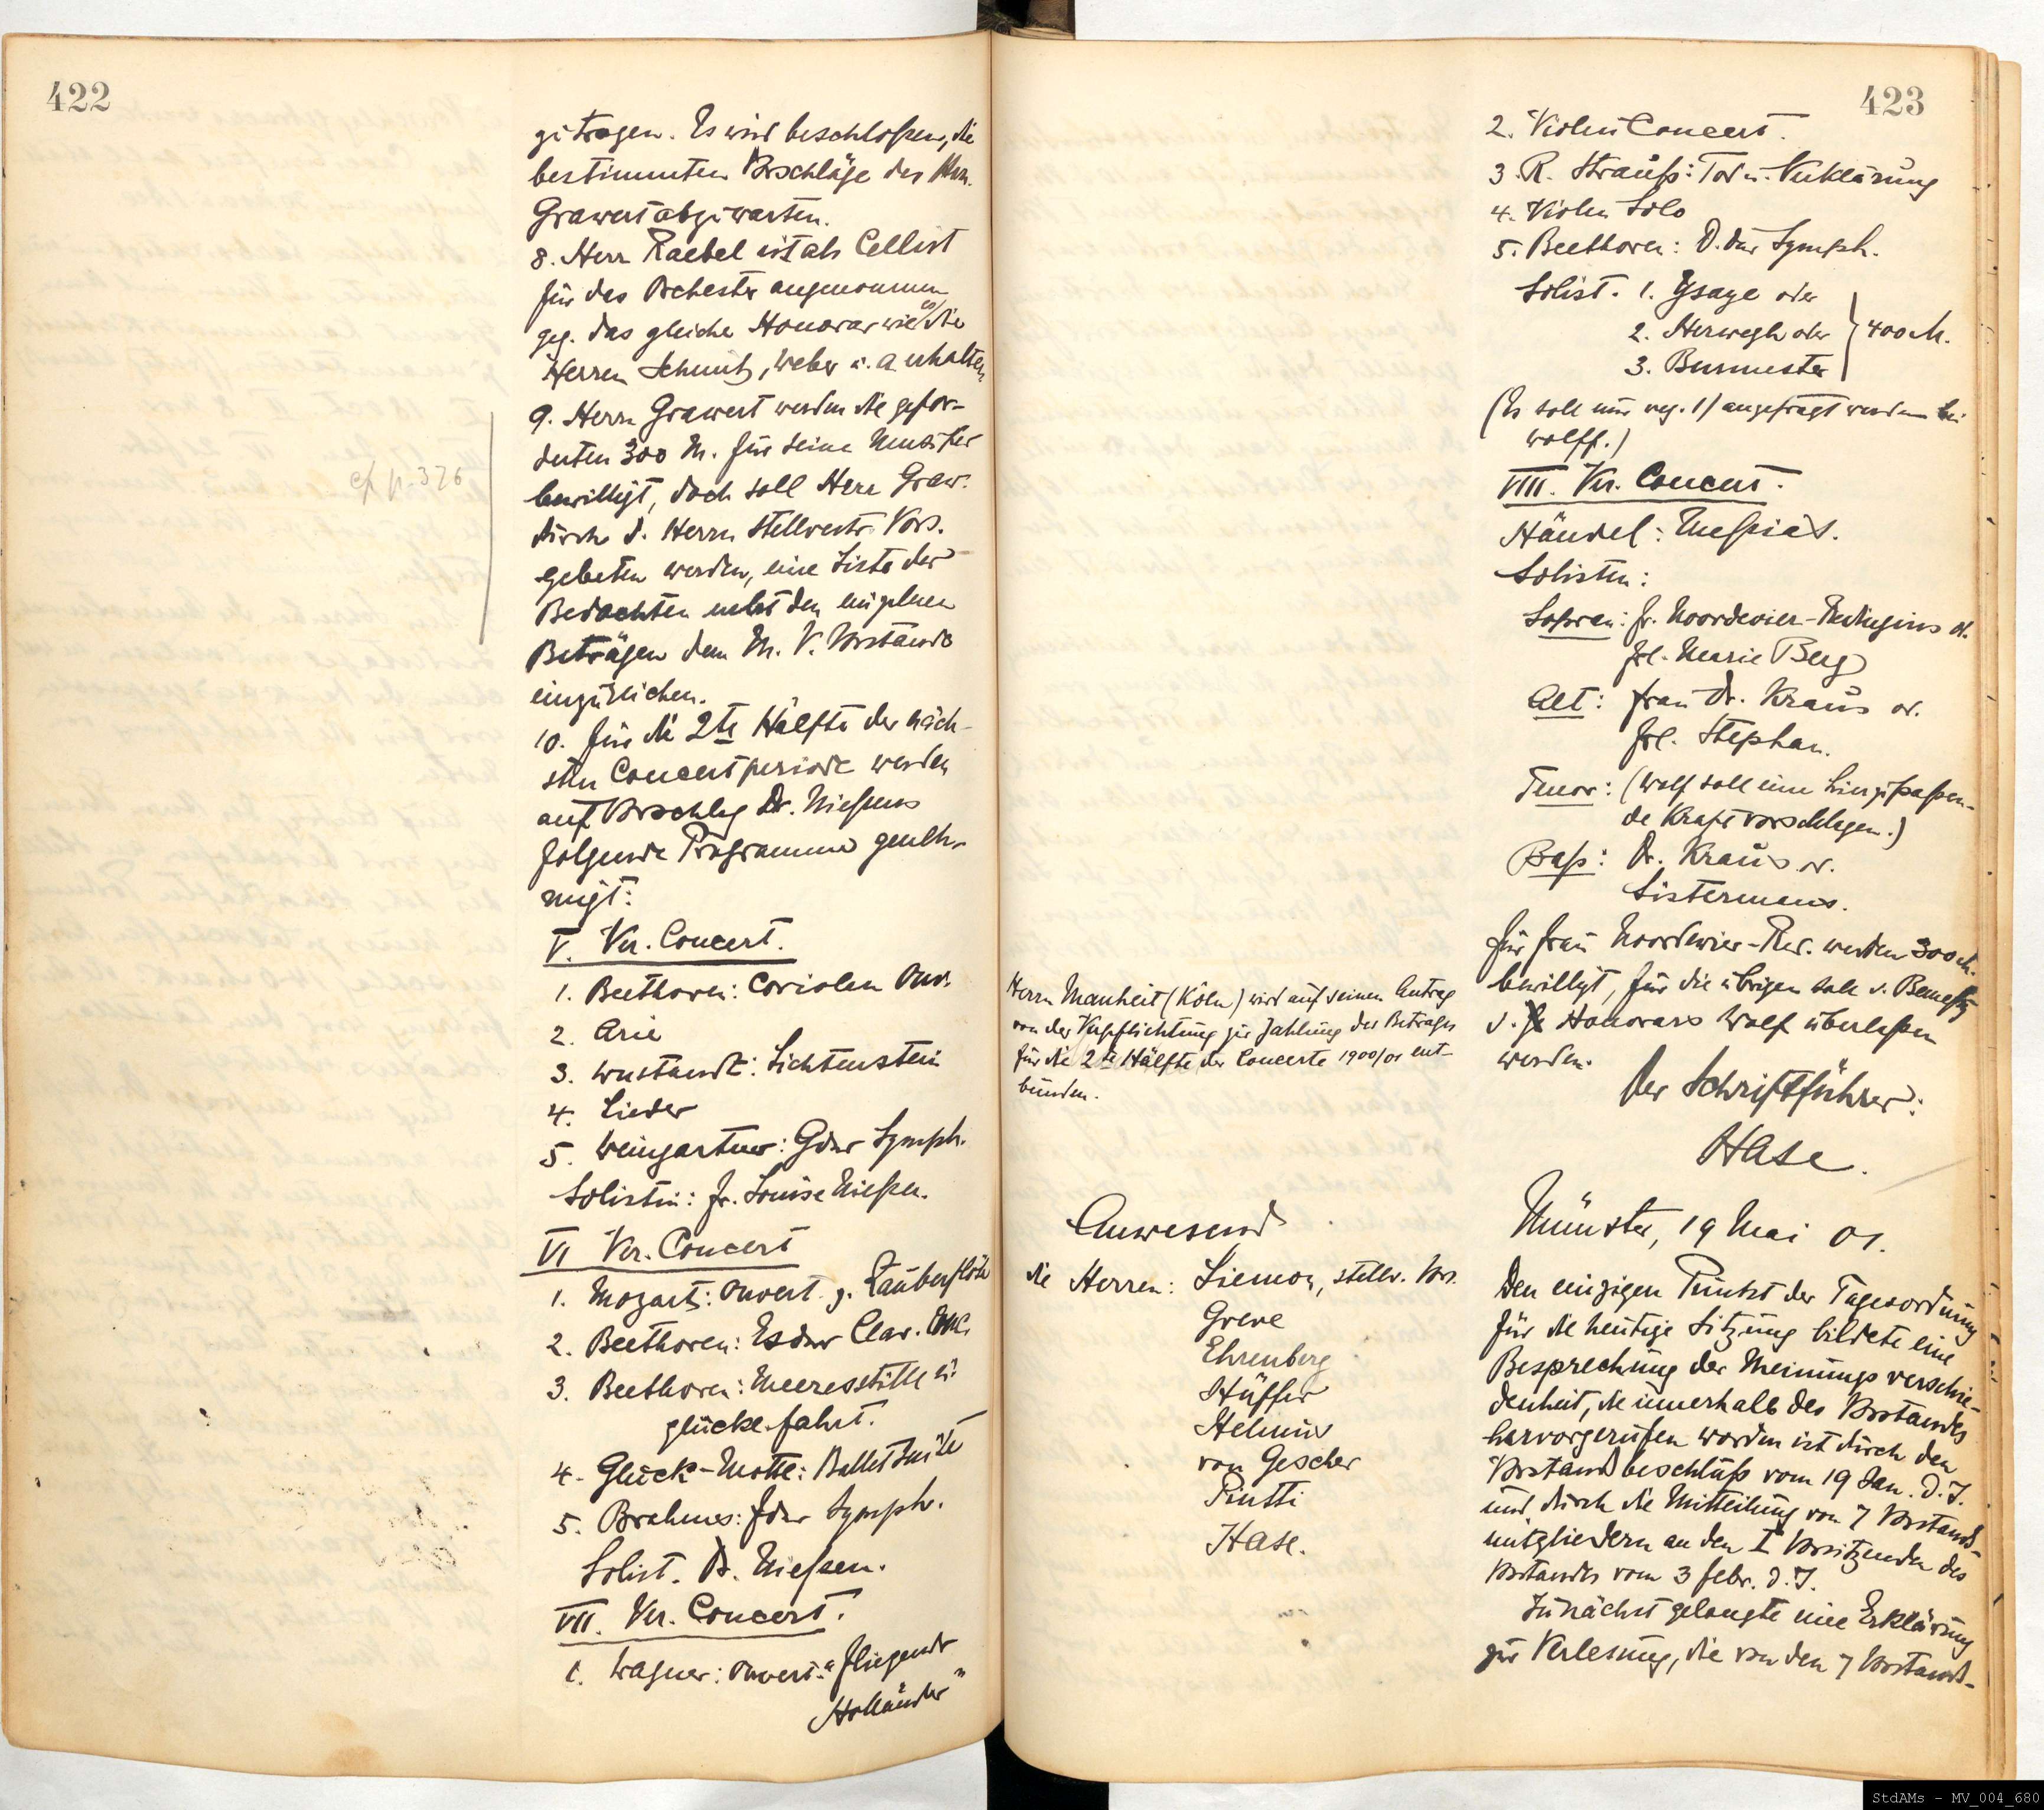 422
getragen. Es wird beschloßen, die
bestimmten Vorschläge des Hrn.
Grawert abzuwarten.
8. Herr Raebel ist als Cellist
für das Orchester angenommen
geg. das gleiche Honorar wie es die
Herren Schmitz, Weber u. a erhalten
9. Herrn Grawert werden die gefor-
derten 300 M. für seine Musiker
bewilligt, doch soll Herr Graw.
durch d. Herrn stellvertr. Vors.
gebeten werden, eine Liste der
Bedachten nebst den einzelnen
Beträgen dem M. V. Vorstande
einzureichen.
cf p. 326
10. Für die 2te Hälfte der näch-
sten Concertperiode werden
auf Vorschlag Dr. Nießens
folgende Programme geneh-
migt:
V. Ver. Concert.
1. Beethoven: Coriolan Ouv.
2. Arie
3. Wustandt: Lichtenstein
4. Lieder
5. Weingartner: Gdur Symph.
Solistin: Fr. Louise Nießen.
VI Ver. Concert
1. Mozart: Ouvert. z. Zauberflöte
2. Beethoven: Esdur Clav. Conc.
3. Beethoven: Meeresstille u.
glückl. Fahrt.
4. Gluck-Mottl: Ballet Suite
5. Brahms: Fdur Symph.
Solist. Dr. Nießen.
VII. Ver. Concert.
1. Wagner: Ouvert. "Fliegende
Holländer"
423
2. Violin Concert.
3. R. Strauß: Tod u. Verklärung
4. Violin Solo
5. Beethoven: D. dur Symph.
Solist. 1. Ysaye oder
2. Herwegh oder
3. Burmester
400 M.
(Es soll nur weg. 1) angefragt werden bei
Wolff.)
VIII. Ver. Concert.
Händel: Meßias.
Solisten:
Sopran: Fr. Noordewier-Redingius od.
Frl. Marie Berg
Alt: Frau Dr. Kraus od.
Frl. Stephan.
Tenor: (Wolf soll eine hierzu paßen-
de Kraft vorschlagen.)
Baß: Dr. Kraus od.
Sistermans.
Für Frau Noordewier-Red. werden 300 M.
bewilligt, für die übrigen soll d. Bemeßg
d. Honorars Wolf überlaßen
werden.
Der Schriftführer:
Hase.
Herrn Manheit (Köln) wird auf seinen Antrag
von der Verpflichtung zur Zahlung des Betrages
für die 2te Hälfte der Concerte 1900/01 ent-
bunden.
Anwesend
die Herren: Siemon, stellv. Vors.
Greve
Ehrenberg
Hüffer
Helmus
von Gescher
Piutti
Hase.
Münster, 19 Mai 01.
Den einzigen Punkt der Tagesordnung
für die heutige Sitzung bildete eine
Besprechung der Meinungsverschie-
denheit, die innerhalb des Vorstandes
hervorgerufen worden ist durch den
Vorstandbeschluß vom 19 Jan. d. J.
und durch die Mitteilung von 7 Vorstands-
mitgliedern an den I Vorsitzenden des
Vorstandes vom 3 Febr. d. J.
Zunächst gelangte eine Erklärung
zur Verlesung, die von den 7 Vorstands-
StdAMs - MV_004_680